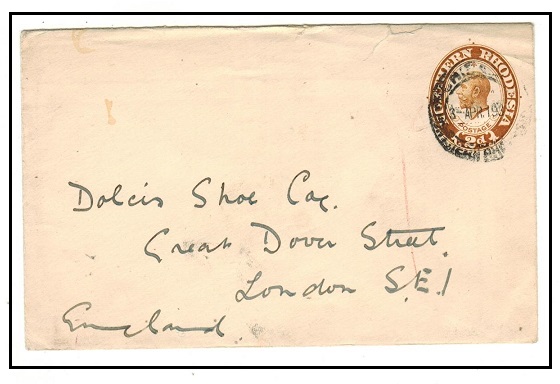 RHODESIA
POSTAGE
2d
APR 19
Dolcis Shoe Coy.
Great Dover Street
London S.E.1
England